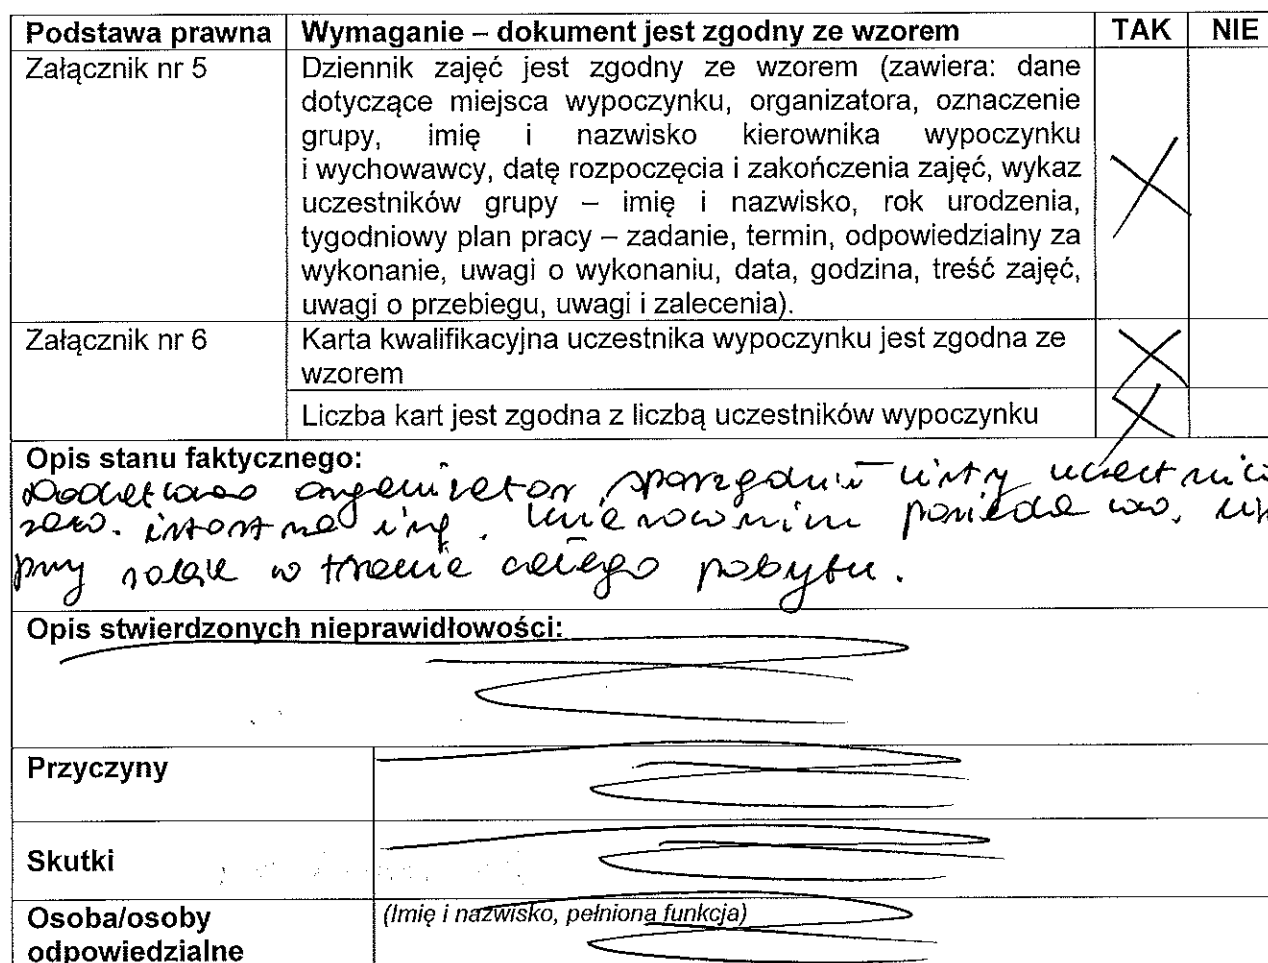 Podstawa prawna Wymaganie – dokument jest zgodny ze wzorem TAK NIE
Załącznik nr 5 Dziennik zajęć jest zgodny ze wzorem (zawiera: dane
dotyczące miejsca wypoczynku, organizatora, oznaczenie
grupy, imię i nazwisko kierownika wypoczynku
i wychowawcy, datę rozpoczęcia i zakończenia zajęć, wykaz
uczestników grupy – imię i nazwisko, rok urodzenia,
tygodniowy plan pracy – zadanie, termin, odpowiedzialny za
wykonanie, uwagi o wykonaniu, data, godzina, treść zajęć,
uwagi o przebiegu, uwagi i zalecenia).
Załącznik nr 6 Karta kwalifikacyjna uczestnika wypoczynku jest zgodna ze
wzorem
Liczba kart jest zgodna z liczbą uczestników wypoczynku
Opis stanu faktycznego:
Dodatkowo organizator sporządził listy
istotne inf. kierownik posiada
przy sobie w trakcie całego pobytu.
Opis stwierdzonych nieprawidłowości:
Przyczyny
Skutki
Osoba/osoby (Imię i nazwisko, pełniona funkcja)
odpowiedzialne